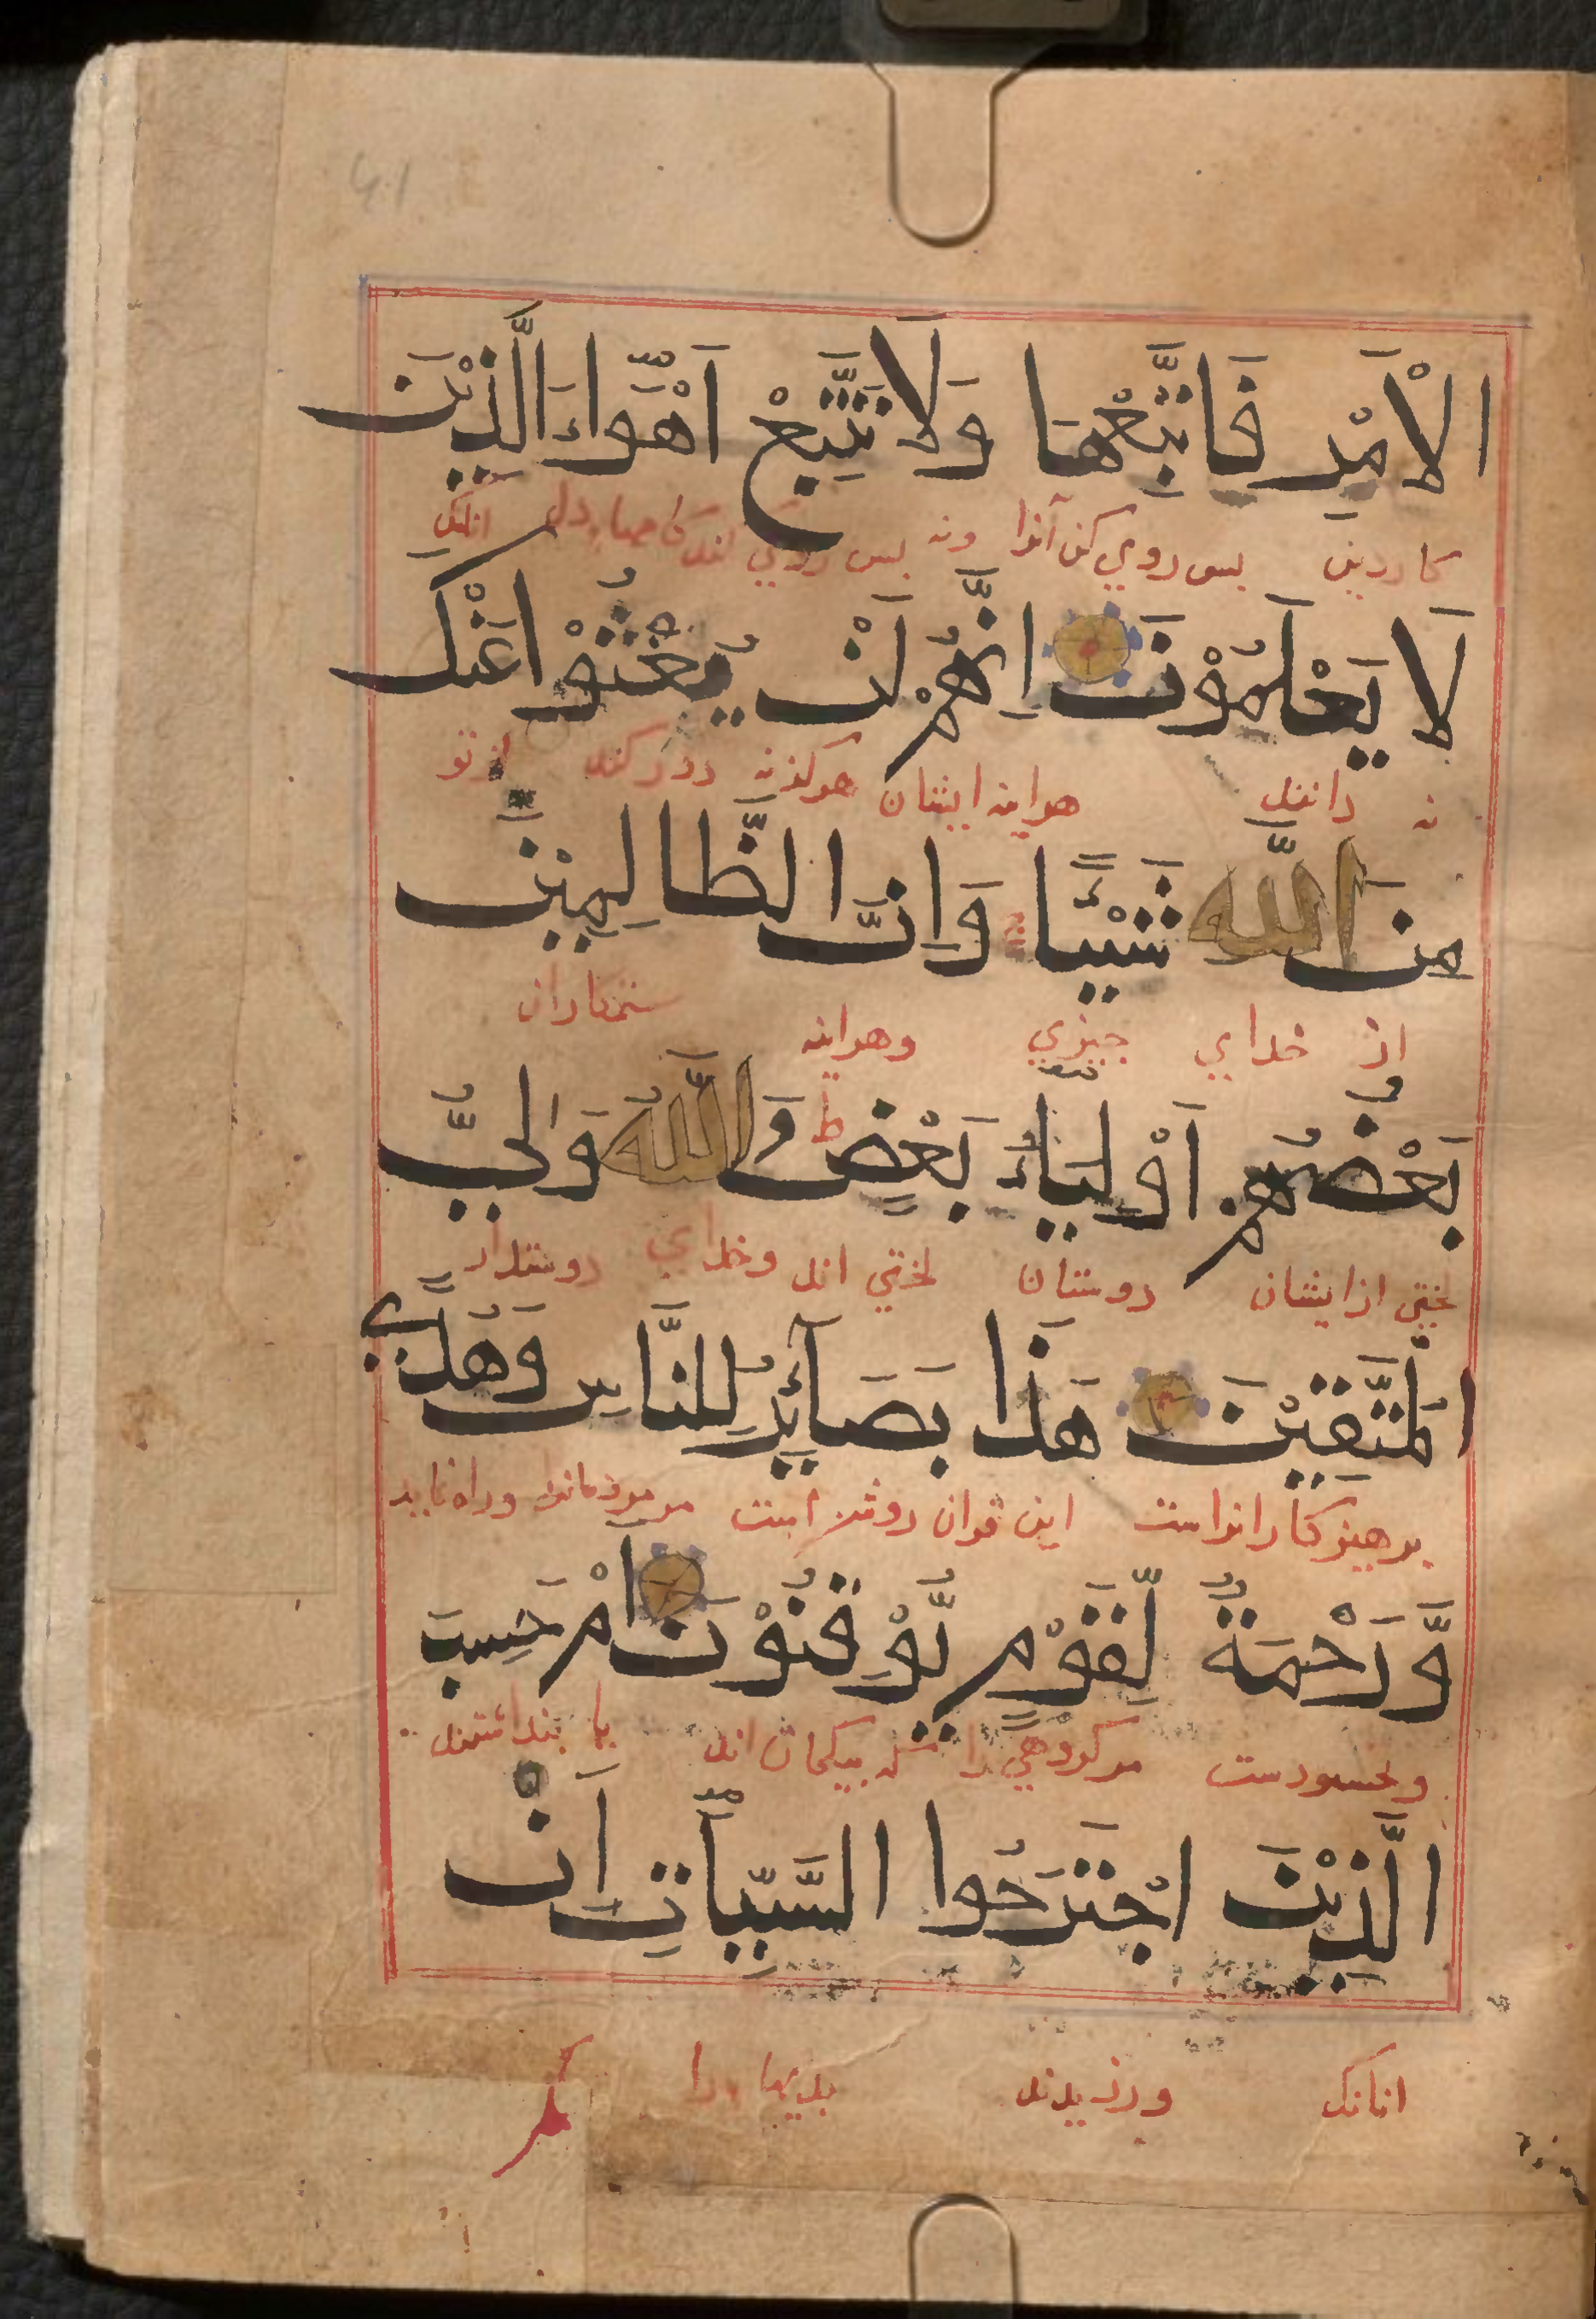 الْاَمْرِ فَاتَّبِعْهَا وَلَا تَتَّبِعْ اَهْوَاءَ الَّذِيْنَ
كاردين بس روي كن آنرا ونه بس روي كند
لَا يَعْلَمُوْنَ اِنَّهُمْ لَنْ يُغْنُوْا عَنْكَ
نه دانند هراينه ايشان هركزنه دور كنند از تو
مِنَ اللّٰهِ شَيْـًٔا وَاِنَّ الظَّالِمِيْنَ
از خداي چيزي وهراينه ستمكاران
بَعْضُهُمْ اَوْلِيَاءُ بَعْضٍ ط وَاللّٰهُ وَلِيُّ
لختي ازايشان دوستان لختي اند وخداي دوستدار
الْمُتَّقِيْنَ هَذَا بَصَآئِرُ لِلنَّاسِ وَهُدًي
برهيزكارانراست اين قران روشن است مر مردمانرا وراه نمايد
وَّرَحْمَةٌ لِّقَوْمٍ يُّوْقِنُوْنَ اَمْ حَسِبَ
وبخشودست مركروهي را كه بيكمان اند يا بنداشتند
الَّذِيْنَ اجْتَرَحُوا السَّيِّاٰتِ اَنْ
انانكه ورزيدند بديها را كه